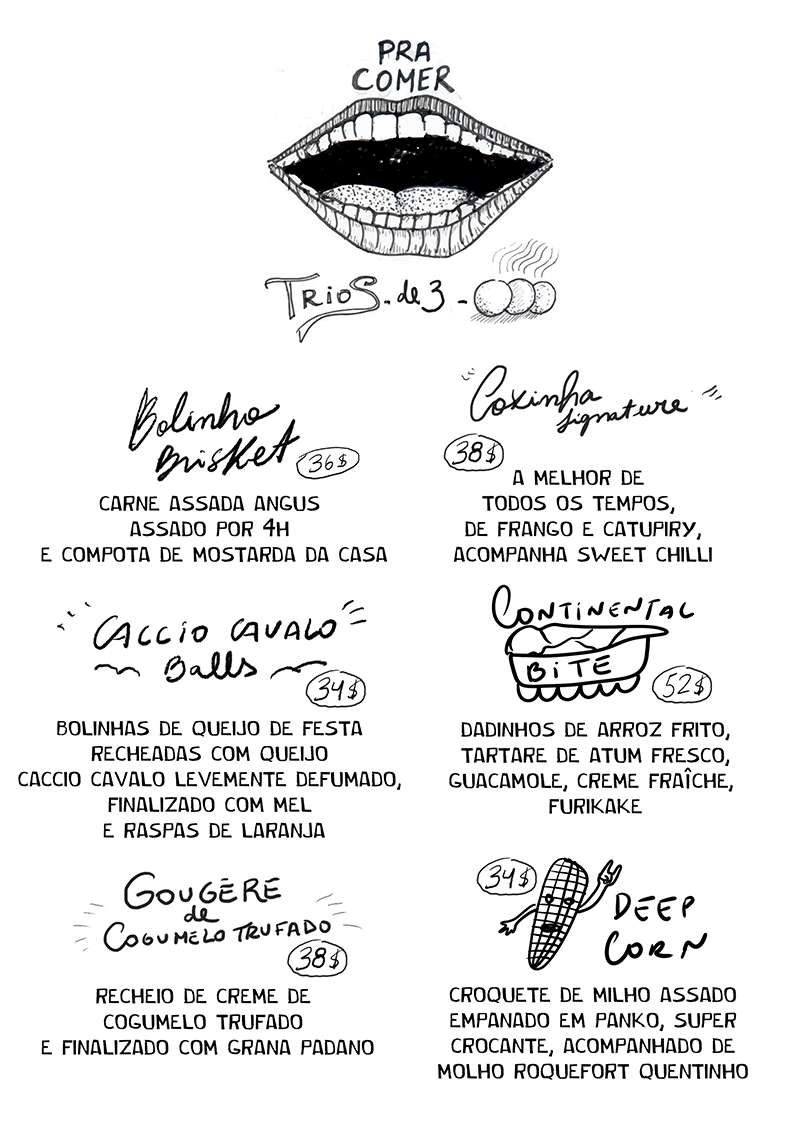 PRA
COMER
TRIOS. de 3 -
Bolinho
Brisket
36$
CARNE ASSADA ANGUS
ASSADO POR 4H
E COMPOTA DE MOSTARDA DA CASA
Coxinha
signature
38$
A MELHOR DE
TODOS OS TEMPOS,
DE FRANGO E CATUPIRY,
ACOMPANHA SWEET CHILLI
CACCIO CAVALO
Balls
34$
BOLINHAS DE QUEIJO DE FESTA
RECHEADAS COM QUEIJO
CACCIO CAVALO LEVEMENTE DEFUMADO,
FINALIZADO COM MEL
E RASPAS DE LARANJA
CONTINENTAL
BITE
52$
DADINHOS DE ARROZ FRITO,
TARTARE DE ATUM FRESCO,
GUACAMOLE, CREME FRAÎCHE,
FURIKAKE
GOUGÉRE
de
COGUMELO TRUFADO
38$
RECHEIO DE CREME DE
COGUMELO TRUFADO
E FINALIZADO COM GRANA PADANO
34$
DEEP
CORN
CROQUETE DE MILHO ASSADO
EMPANADO EM PANKO, SUPER
CROCANTE, ACOMPANHADO DE
MOLHO ROQUEFORT QUENTINHO